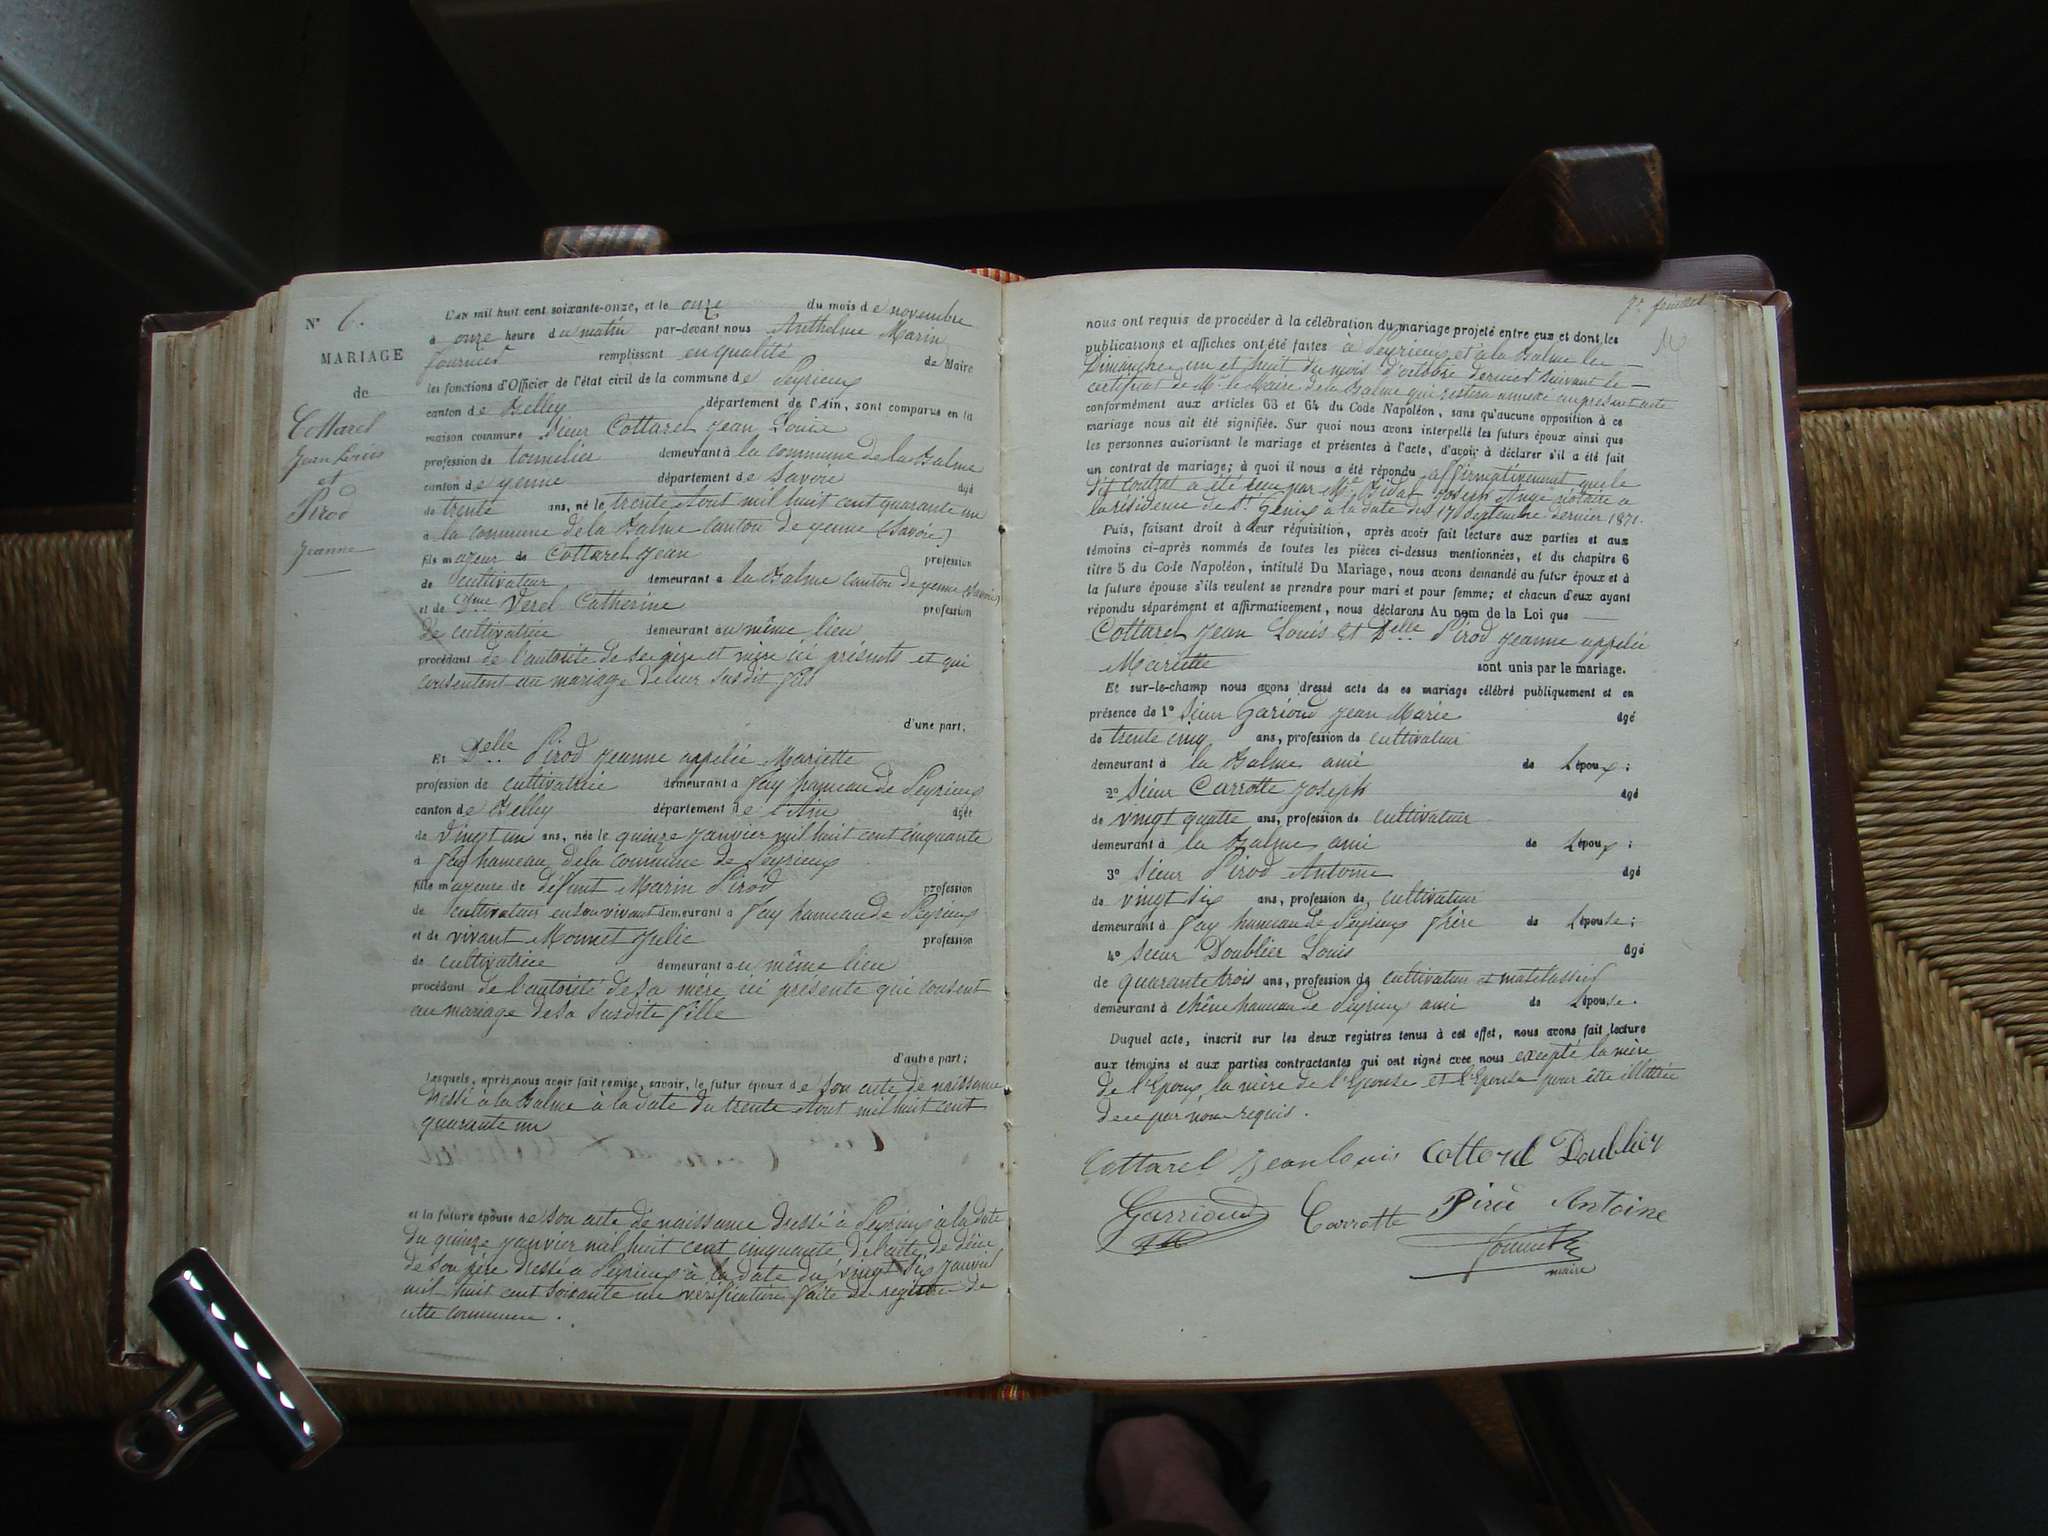 N° 6.
MARIAGE
de
Cottarel
Jean Louis
et
Pirod
Jeanne
L'an mil huit cent soixante-onze, et le onze du mois de novembre
à onze heure du matin par-devant nous Anthelme Marin
Fournier remplissant en qualité de Maire
les fonctions d'Officier de l'état civil de la commune de Peyrieux
canton de Belley département de l'Ain, sont comparus en la
maison commune Sieur Cottarel Jean Louis
profession de tonnelier demeurant à la commune de la Balme
canton de yenne département de Savoie âgé
de trente ans, né le trente Aout mil huit cent quarante un
à la commune de la Balme canton de yenne (Savoie)
fils majeur de Cottarel Jean profession
de cultivateur demeurant à la Balme canton de yenne (Savoie)
et de Dme Verel Catherine profession
de cultivatrice demeurant au même lieu
procédant de l'autorité de ses père et mère ici présents et qui
consentent au mariage de leur susdit fils
d'une part,
Et Delle Pirod Jeanne appelée Mariette
profession de cultivatrice demeurant à Fay hameau de Peyrieux
canton de Belley département de l'Ain âgée
de vingt un ans, née le quinze Janvier mil huit cent cinquante
à Fay hameau de la commune de Peyrieux
fille majeure de défunt Marin Pirod profession
de cultivateur en son vivant demeurant à Fay hameau de Peyrieux
et de vivant Monnet Julie profession
de cultivatrice demeurant au même lieu
procédant de l'autorité de sa mère ici présente qui consent
au mariage de sa susdite fille
d'autre part;
Lesquels, après nous avoir fait remise, savoir, le futur époux de son acte de naissance
dressé à la Balme à la date du trente Aout mil huit cent
quarante un
et la future épouse de son acte de naissance dressé à Peyrieux à la date
du quinze Janvier mil huit cent cinquante de l'acte de décès
de son père dressé à Peyrieux à la date du vingt six Janvier
mil huit cent soixante une vérification faite au registre de
cette commune.
7e feuillet
nous ont requis de procéder à la célébration du mariage projeté entre eux et dont les
publications et affiches ont été faites à Peyrieux et à la Balme les
Dimanches un et huit du mois d'octobre dernier suivant le
certificat de M. le Maire de la Balme qui restera annexé au présent acte
conformément aux articles 63 et 64 du Code Napoléon, sans qu'aucune opposition à ce
mariage nous ait été signifiée. Sur quoi nous avons interpellé les futurs époux ainsi que
les personnes autorisant le mariage et présentes à l'acte, d'avoir à déclarer s'il a été fait
un contrat de mariage; à quoi il nous a été répondu affirmativement que le
dit contrat a été reçu par Me Bidal Joseph Ange notaire à
la résidence de St Genix à la date du 17 septembre dernier 1871.
Puis, faisant droit à leur réquisition, après avoir fait lecture aux parties et aux
témoins ci-après nommés de toutes les pièces ci-dessus mentionnées, et du chapitre 6
titre 5 du Code Napoléon, intitulé Du Mariage, nous avons demandé au futur époux et à
la future épouse s'ils veulent se prendre pour mari et pour femme; et chacun d'eux ayant
répondu séparément et affirmativement, nous déclarons Au nom de la Loi que
Cottarel Jean Louis et Delle Pirod Jeanne appelée
Mariette sont unis par le mariage.
Et sur-le-champ nous avons dressé acte de ce mariage célébré publiquement et en
présence de 1° Sieur Garioud Jean Marie âgé
de trente cinq ans, profession de cultivateur
demeurant à la Balme ami de l'époux;
2° Sieur Carrotte Joseph âgé
de vingt quatre ans, profession de cultivateur
demeurant à la Balme ami de l'époux;
3° Sieur Pirod Antoine âgé
de vingt six ans, profession de cultivateur
demeurant à Fay hameau de Peyrieux frère de l'épouse;
4° Sieur Doublier Louis âgé
de quarante trois ans, profession de cultivateur et matelassier
demeurant à chêne hameau de Peyrieux ami de l'épouse.
Duquel acte, inscrit sur les deux registres tenus à cet effet, nous avons fait lecture
aux témoins et aux parties contractantes qui ont signé avec nous excepté la mère
de l'Epoux, la mère de l'Epouse et l'Epouse pour être illettrée
de ce par nous requis.
Cottarel Jean louis Cottarel Doublier
Garrioud Carrotte Pirod Antoine
Fournier
maire